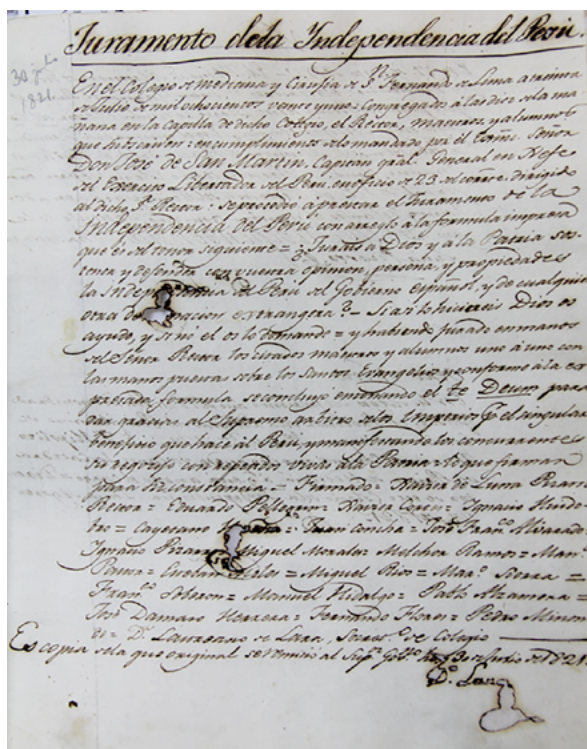 Juramento dela Independencia del Perú.
30 julio
1821.
En el Colegio de medicina y Cirujía de Sn. Fernando de Lima a treinta
de Julio de mil ochocientos veinte y uno: Congregados á las diez de la ma
ñana en la capilla de dicho Colegio, el Rector, maestros, y alumnos
que subscriben: en cumplimiento de lo mandado por el Señor
Don José de San Martin, Capitan gral. General en Xefe
del Exercito Libertador del Perú, en oficio de 23 del dirigido
al dicho Sr. Rector: se procedió a prestar el Juramento de la
Independencia del Perú con arreglo á la formula impresa
que es del tenor siguiente = ¿Jurais a Dios y á la Patria sos
tener y defender con vuestra opinion, persona, y propiedades
la Independencia del Perú del Gobierno español, y de cualquier
otra extrangera? – Si asi lo hiciereis Dios os
ayude, y si no él os lo demande = y habiendo jurado en manos
del Señor Rector los citados maestros y alumnos uno á uno con
las manos puestas sobre los Santos Evangelios, y conforme á la ex
presada formula se concluyó entonando el Te Deum para
dar gracias al Supremo de los Imperios pr. el singular
beneficio que hace al Perú, y manifestando los concurrentes
su regocijo con repetidos vivas á la Patria: lo que firman
para constancia = Firmado = de Luna Pizarro
Rector = Eduardo = = Ignacio
= Cayetano = Juan Concha = José Franco. Alvarado.
Ignacio Pizarro = Miguel Morales = Melchor Ramos = Man.
= = Miguel Rios = Mar.º Sierra =
Franco. = Manuel Hidalgo = Pablo Alzamora =
José Damaso Herrera = Fernando Flores = Pedro
= Dr. Laureano de Lara, de Colegio
Es copia dela que original se remitió al Supr. Gobno. Julio de 1821.
Dr. Lara